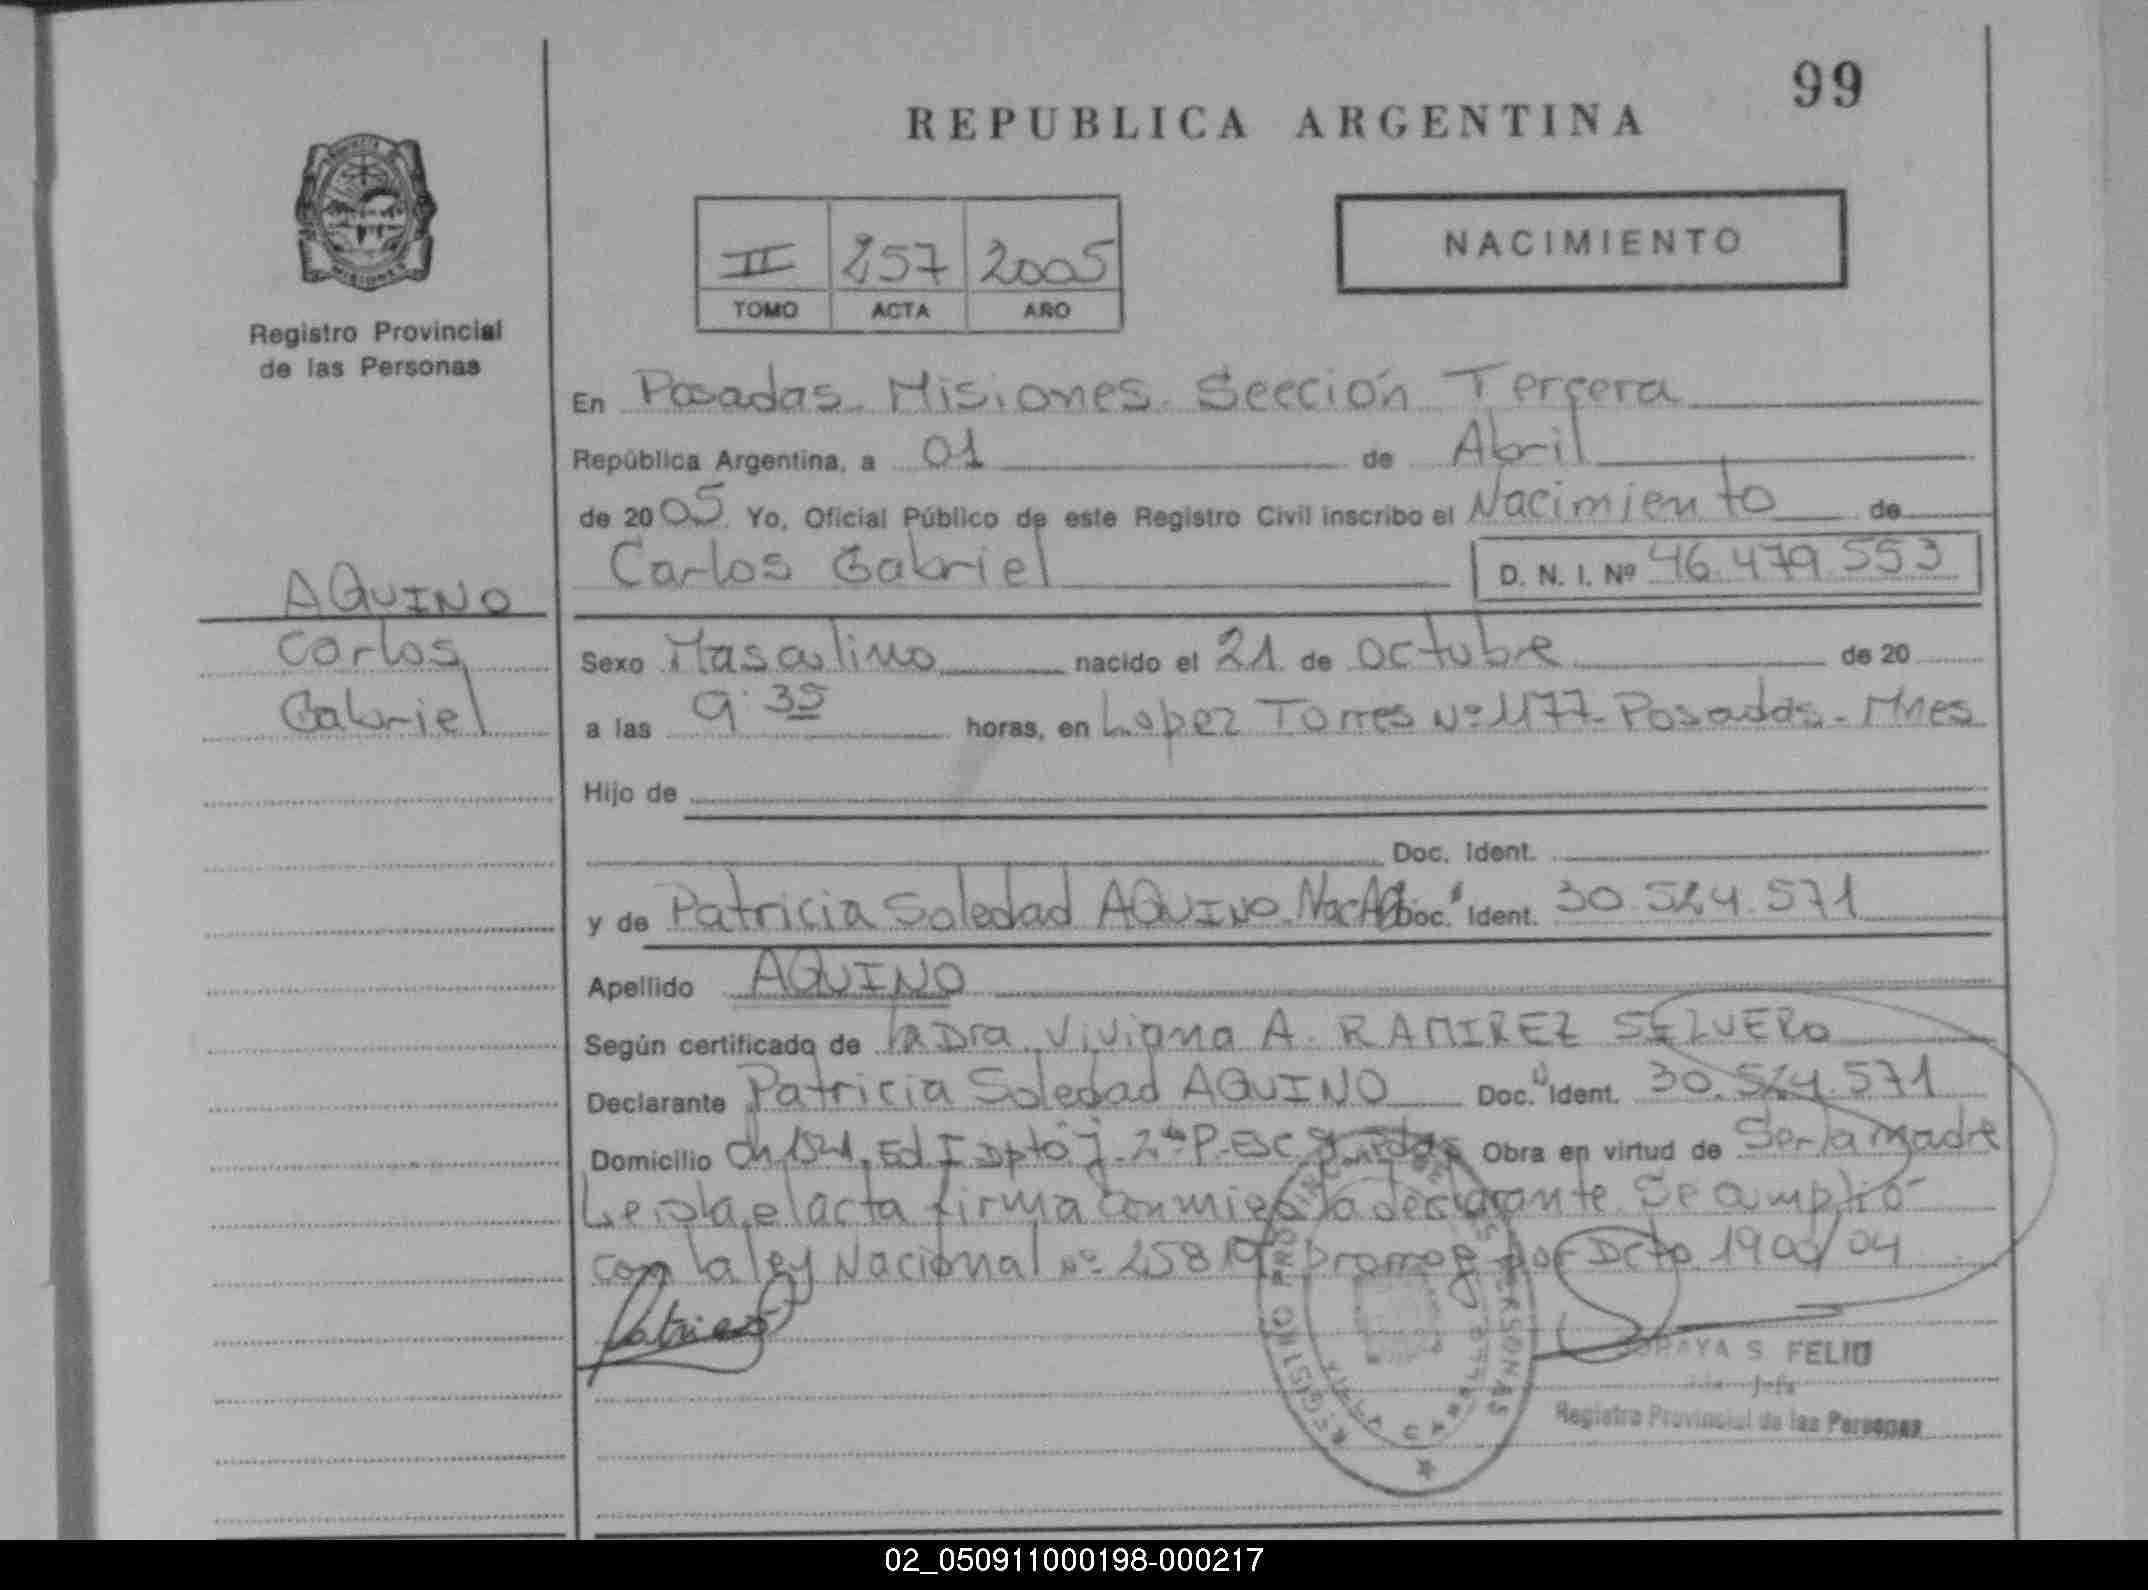 99
REPUBLICA ARGENTINA
II 257 2005
TOMO ACTA AÑO
NACIMIENTO
MISIONES
Registro Provincial
de las Personas
En Posadas - Misiones - Sección Tercera
República Argentina, a 01 de Abril
de 2005 Yo, Oficial Público de este Registro Civil inscribo el Nacimiento de
Carlos Gabriel D. N. I. Nº 46.479.553
AQUINO
Carlos
Gabriel
Sexo Masculino nacido el 21 de octubre de 20
a las 9:35 horas, en Lopez Torres Nº 1177 - Posadas - Mnes
Hijo de
Doc. Ident.
y de Patricia Soledad AQUINO. Doc. Ident. 30.524.571
Apellido AQUINO
Según certificado de la Dra. Viviana A. RAMIREZ
Declarante Patricia Soledad AQUINO Doc. Ident. 30.524.571
Domicilio Ch 1521. Ed I Dpto J - P. Esc Obra en virtud de Ser la madre
Leida el acta firma conmigo la declarante. Se cumplió
con la ley Nacional nº 25819 promog por Dcto 1900/04
REGISTRO PERSONAS
S. FELIU
Jefa
Registro Provincial de las Personas
02_050911000198-000217